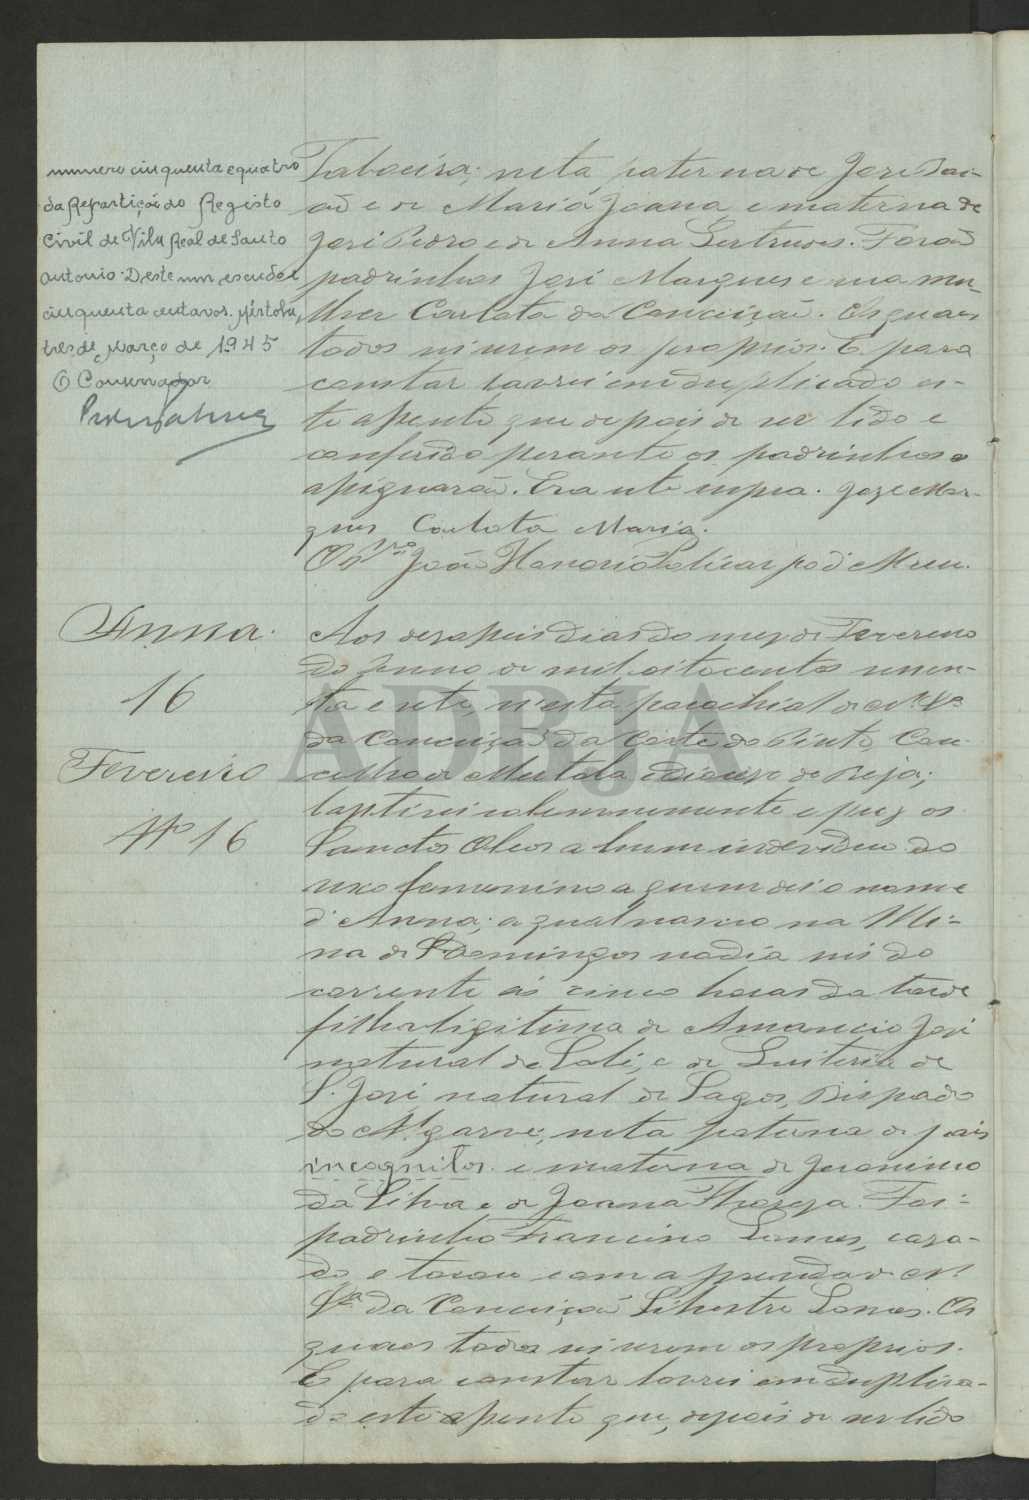 numero cinquenta e quatro
da Repartição do Registo
Civil de Vila Real de Santo
Antonio. Deste um escudo e
cinquenta centavos. Mértola,
tres de Março de 1945
O Conservador
neta paterna de José
e de Maria Joana, e materna de
José Pedro e de Anna Gertrudes. Forão
padrinhos José Marques e sua mu-
lher Carlota da Conceição. Os quaes
todos sei serem os proprios. E para
constar lavrei em duplicado es-
te assento que depois de ser lido e
conferido perante os padrinhos o
assignarão. Era ut supra. Jose Mar-
ques Carlota Maria.
João Honorio Policarpo d'
Anna.
16
Fevereiro
Nº 16
Aos desaseis dias do mez de Fevereiro
do anno de mil oitocentos noven-
ta e sete, n'esta parochial de N. Srª
da Conceição da Corte do Pinto, Con-
celho de Mertola e diocese de Beja;
baptisei solemnemente e puz os
Sanctos Oleos a hum individuo do
sexo femenino a quem dei o nome
d'Anna; a qual nasceu na Mi-
na de S. Domingos no dia seis do
corrente ás cinco horas da tarde
filha ligitima de Amancio José
natural de Loulé, e de Quiteria de
S. José natural de Lagos, Bispado
do Algarve; neta paterna de pais
incognitos. e materna de Jeronimo
da Silva e de Joanna Thereza. Foi
padrinho Francisco Lemes, casa-
do e tocou com a prenda de N.
Srª da Conceição Silvestre Lemes. Os
quaes todos sei serem os proprios.
E para constar lavrei em duplica-
do este assento que, depois de ser lido
ADBJA